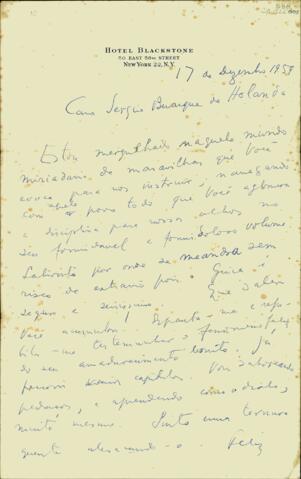 HOTEL BLACKSTONE
50 EAST 58TH STREET
NEW YORK 22, N.Y.
17 de Dezembro 1957
Caro Sergio Buarque de Holanda
Estou mergulhado naquele mundo
de maravilhas que Você
evoca para nos restituir, navegando
com aquele povo todo que Você aglomera
e disciplina para nossos olhos no
seu formidavel e formidoloso volume.
Labirinto por onde se meandra sem
risco de extravio pois o Guia é
seguro e
Você acumulou! Espanta-me e rejubila-me
testemunhar o fenomeno feliz
do seu amadurecimento bonito. Já
percorri capitulos. Vou saboreando
e aprendendo como o diabo,
muito mesmo. Sinto uma ternura
quente